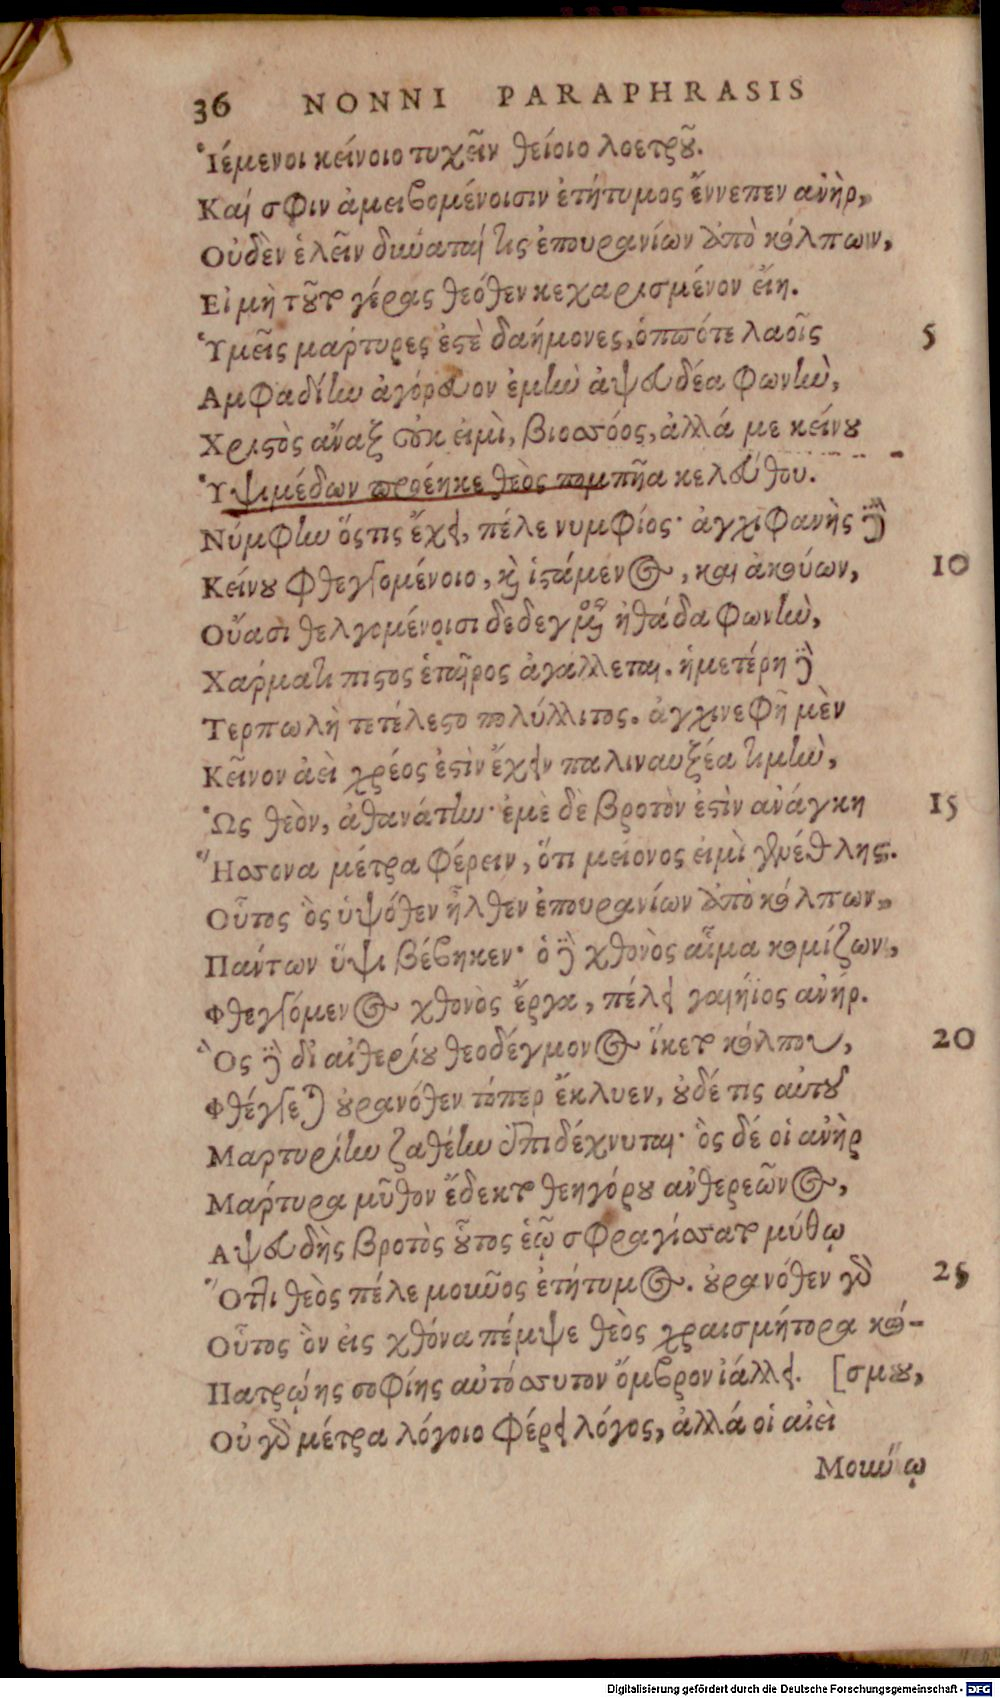 36 NONNI PARAPHRASIS
Ἱέμενοι κείνοιο τυχεῖν θείοιο λοετροῦ.
Καί σφιν ἀμειβομένοισιν ἐτήτυμος ἔννεπεν ἀνὴρ,
Οὐδὲν ἑλεῖν δύναταί τις ἐπουρανίων ἀπὸ κόλπων,
Εἰ μὴ τοῦτο γέρας θεόθεν κεχαρισμένον εἴη.
Ὑμεῖς μάρτυρες ἐστὲ δαήμονες, ὁππότε λαοῖς 5
Αμφαδίην ἀγόρευον ἐμὴν ἀψευδέα φωνὴν,
Χριστὸς ἄναξ οὐκ εἰμὶ, βιοσσόος, ἀλλά με κείνου
Ὑψιμέδων προέηκε θεὸς πομπῆα κελεύθου.
Νύμφην ὅστις ἔχει, πέλε νυμφίος· ἀγχιφανὴς δὲ
Κείνου φθεγξομένοιο, καὶ ἱστάμενος, καὶ ἀκούων, 10
Οὔασι θελγομένοισι δεδεγμένος ἠθάδα φωνὴν,
Χάρματι πιστὸς ἑταῖρος ἀγάλλεται. ἡμετέρη δὲ
Τερπωλὴ τετέλεστο πολύλλιτος. ἀγχινεφῆ μὲν
Κεῖνον ἀεὶ χρέος ἐστὶν ἔχειν παλιναυξέα τιμὴν,
Ὡς θεὸν, ἀθανάτην· ἐμὲ δὲ βροτὸν ἐστὶν ἀνάγκη 15
Ἥσσονα μέτρα φέρειν, ὅτι μείονος εἰμὶ γενέθλης.
Οὗτος ὃς ὑψόθεν ἦλθεν ἐπουρανίων ἀπὸ κόλπων,
Πάντων ὕψι βέβηκεν· ὁ δὲ χθονὸς αἷμα κομίζων,
Φθεγξόμενος χθονὸς ἔργα, πέλει γαιήϊος ἀνήρ.
Ὃς δὲ δι' αἰθερίου θεοδέγμονος ἵκετο κόλπου, 20
Φθέγξεται οὐρανόθεν τόπερ ἔκλυεν, οὐδέ τις αὐτοῦ
Μαρτυρίην ζαθέην ἐπιδέχνυται· ὃς δέ οἱ ἀνὴρ
Μάρτυρα μῦθον ἔδεκτο θεηγόρου ἀνθερεῶνος,
Αψευδὴς βροτὸς οὗτος ἑῷ σφραγίσσατο μύθῳ
Ὅττι θεὸς πέλε μοῦνος ἐτήτυμος. οὐρανόθεν γὰρ 25
Οὗτος ὃν εἰς χθόνα πέμψε θεὸς χραισμήτορα κό-
Πατρῴης σοφίης αὐτόσσυτον ὄμβρον ἰάλλει. [σμου,
Οὐ γὰρ μέτρα λόγοιο φέρει λόγος, ἀλλά οἱ αἰεὶ
Μούνῳ
Digitalisierung gefördert durch die Deutsche Forschungsgemeinschaft - DFG